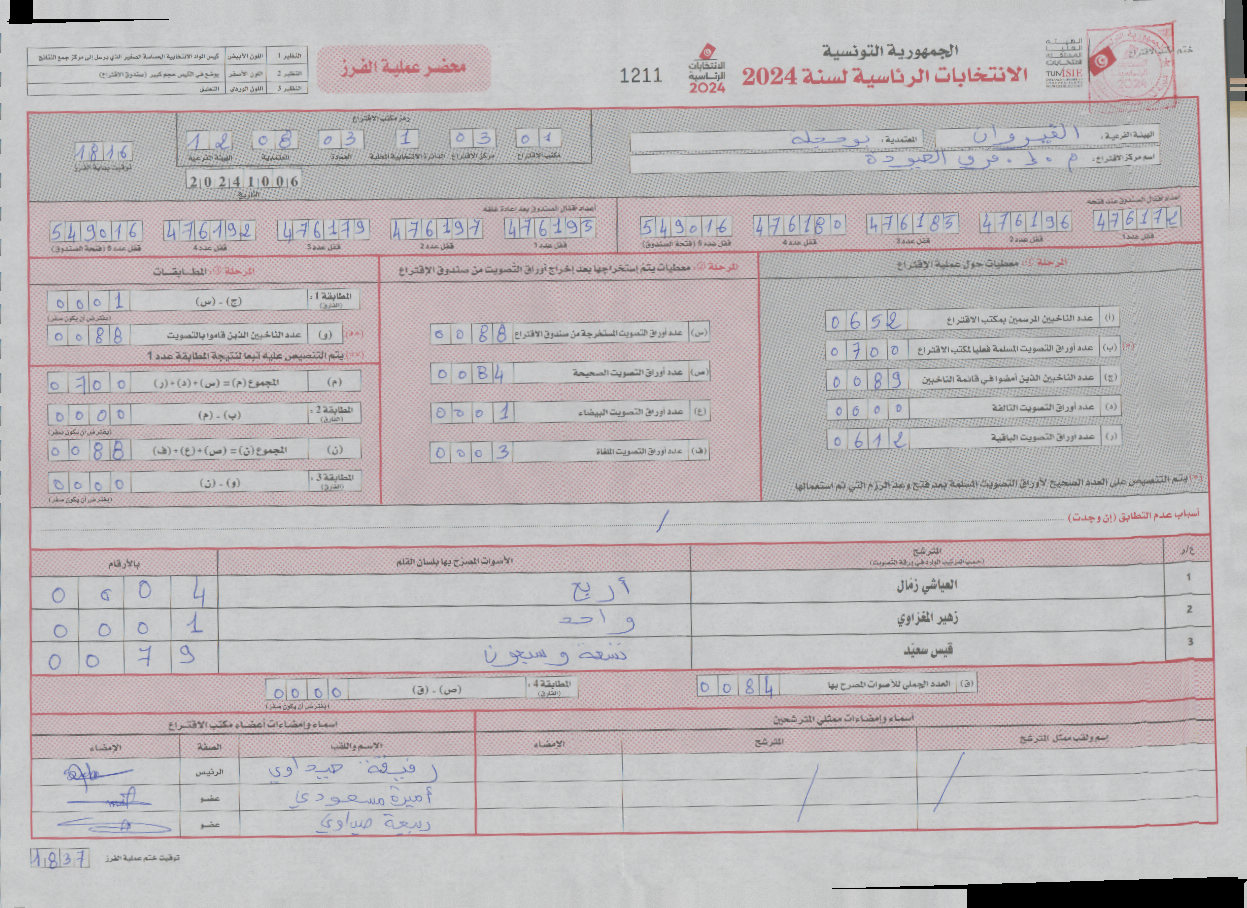 الجمهورية التونسية
الانتخابات الرئاسية لسنة 2024
الهيئة العليا المستقلة للانتخابات
TUNISIE
الانتخابات الرئاسية 2024
1211
محضر عملية الفرز
النظير 1 اللون الأبيض كيس المواد الانتخابية الحساسة الصغير الذي يرسل إلى مركز جمع النتائج
النظير 2 اللون الأصفر يوضع في الكيس حجم كبير (صندوق الاقتراع)
النظير 3 اللون الوردي التعليق
الهيئة الفرعية: القيروان المعتمدية: بوحجلة
اسم مركز الاقتراع: م.إ. فرق العبودة
رمز مكتب الاقتراع
01 03 1 03 08 12
مكتب الاقتراع مركز الاقتراع الدائرة الانتخابية المحلية العمادة المعتمدية الهيئة الفرعية
20241006
التاريخ
1816
توقيت بداية الفرز
أعداد أقفال الصندوق عند فتحه
476172 476196 476183 476180 549016
قفل عدد 1 قفل عدد 2 قفل عدد 3 قفل عدد 4 قفل عدد 5 (فتحة الصندوق)
أعداد أقفال الصندوق بعد إعادة غلقه
476193 476197 476179 476192 549016
قفل عدد 1 قفل عدد 2 قفل عدد 3 قفل عدد 4 قفل عدد 5 (فتحة الصندوق)
المرحلة ①: معطيات حول عملية الاقتراع
(أ) عدد الناخبين المرسمين بمكتب الاقتراع 0652
(*) (ب) عدد أوراق التصويت المسلمة فعليا لمكتب الاقتراع 0700
(ج) عدد الناخبين الذين أمضوا في قائمة الناخبين 0089
(د) عدد أوراق التصويت التالفة 0000
(ر) عدد أوراق التصويت الباقية 0612
(*) يتم التنصيص على العدد الصحيح لأوراق التصويت المسلمة بعد فتح وعد الرزم التي تم استعمالها
المرحلة ②: معطيات يتم إستخراجها بعد إخراج أوراق التصويت من صندوق الاقتراع
(س) عدد أوراق التصويت المستخرجة من صندوق الاقتراع 0088
(ص) عدد أوراق التصويت الصحيحة 0084
(ع) عدد أوراق التصويت البيضاء 0001
(ف) عدد أوراق التصويت الملغاة 0003
المرحلة ③: المطابقات
المطابقة 1: (الفارق) (ج) - (س) 0001
(يفترض أن يكون صفر)
(**) (و) عدد الناخبين الذين قاموا بالتصويت 0088
(**) يتم التنصيص عليه تبعا لنتيجة المطابقة عدد 1
(م) المجموع (م) = (س) + (د) + (ر) 0700
المطابقة 2: (الفارق) (ب) - (م) 0000
(يفترض أن يكون صفر)
(ن) المجموع (ن) = (ص) + (ع) + (ف) 0088
المطابقة 3: (الفارق) (و) - (ن) 0000
(يفترض أن يكون صفر)
أسباب عدم التطابق (إن وجدت) /
ع/ر المترشح الأصوات المصرح بها بلسان القلم بالأرقام
(حسب الترتيب الوارد في ورقة التصويت)
1 العياشي زمال أربع 0004
2 زهير المغزاوي واحد 0001
3 قيس سعيد تسعة وسبعون 0079
(ق) العدد الجملي للأصوات المصرح بها 0084
المطابقة 4: (الفارق) (ص) - (ق) 0000
(يفترض أن يكون صفر)
أسماء وإمضاءات ممثلي المترشحين
إسم ولقب ممثل المترشح المترشح الإمضاء
أسماء وإمضاءات أعضاء مكتب الاقتراع
الاسم واللقب الصفة الإمضاء
رفيقة صيداوي الرئيس
أميرة مسعودي عضو
ربيعة صيداوي عضو
توقيت ختم عملية الفرز 1837